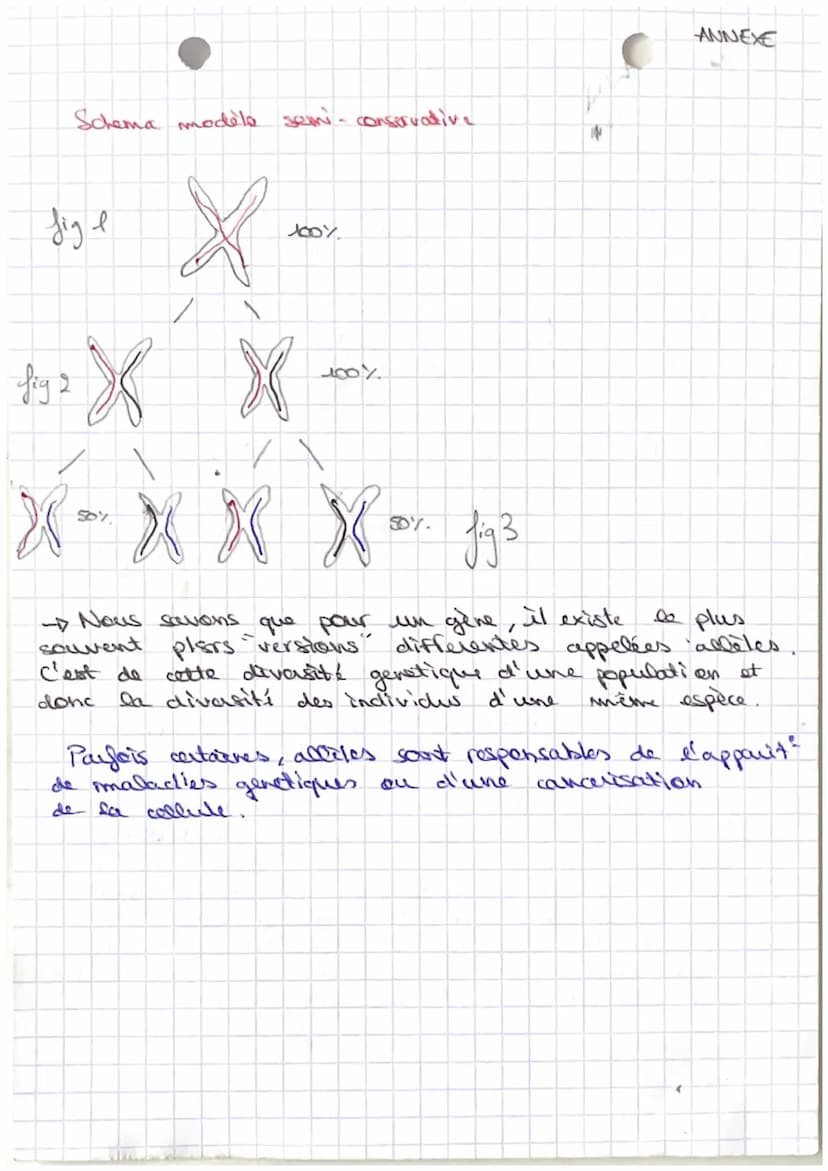 ANNEXE
Schema modèle semi-conservative
fig 1 100%
fig 2 100%.
50%. 50%. fig3
→ Nous savons que pour un gène, il existe le plus
souvent plsrs "versions" differentes appelées allèles.
C'est de cette diversité genetique d'une population et
donc la diversité des individus d'une même espèce.
Parfois certaines, allèles sont responsables de l'apparit°
de maladies genetiques ou d'une cancerisation
de la cellule.